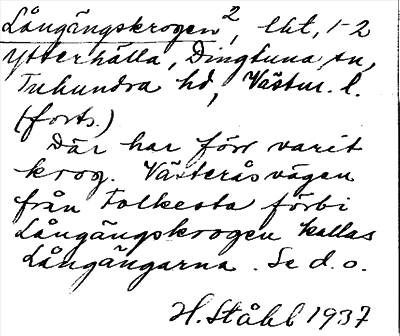 Långängskrogen², lht, 1-2
Ytterhälla, Dingtuna sn,
Tuhundra hd, Västm. l.
(forts.)
Där har förr varit
krog. Västeråsvägen
från Folkesta förbi
Långängskrogen kallas
Långängarna. Se d.o.
H. Ståhl 1937